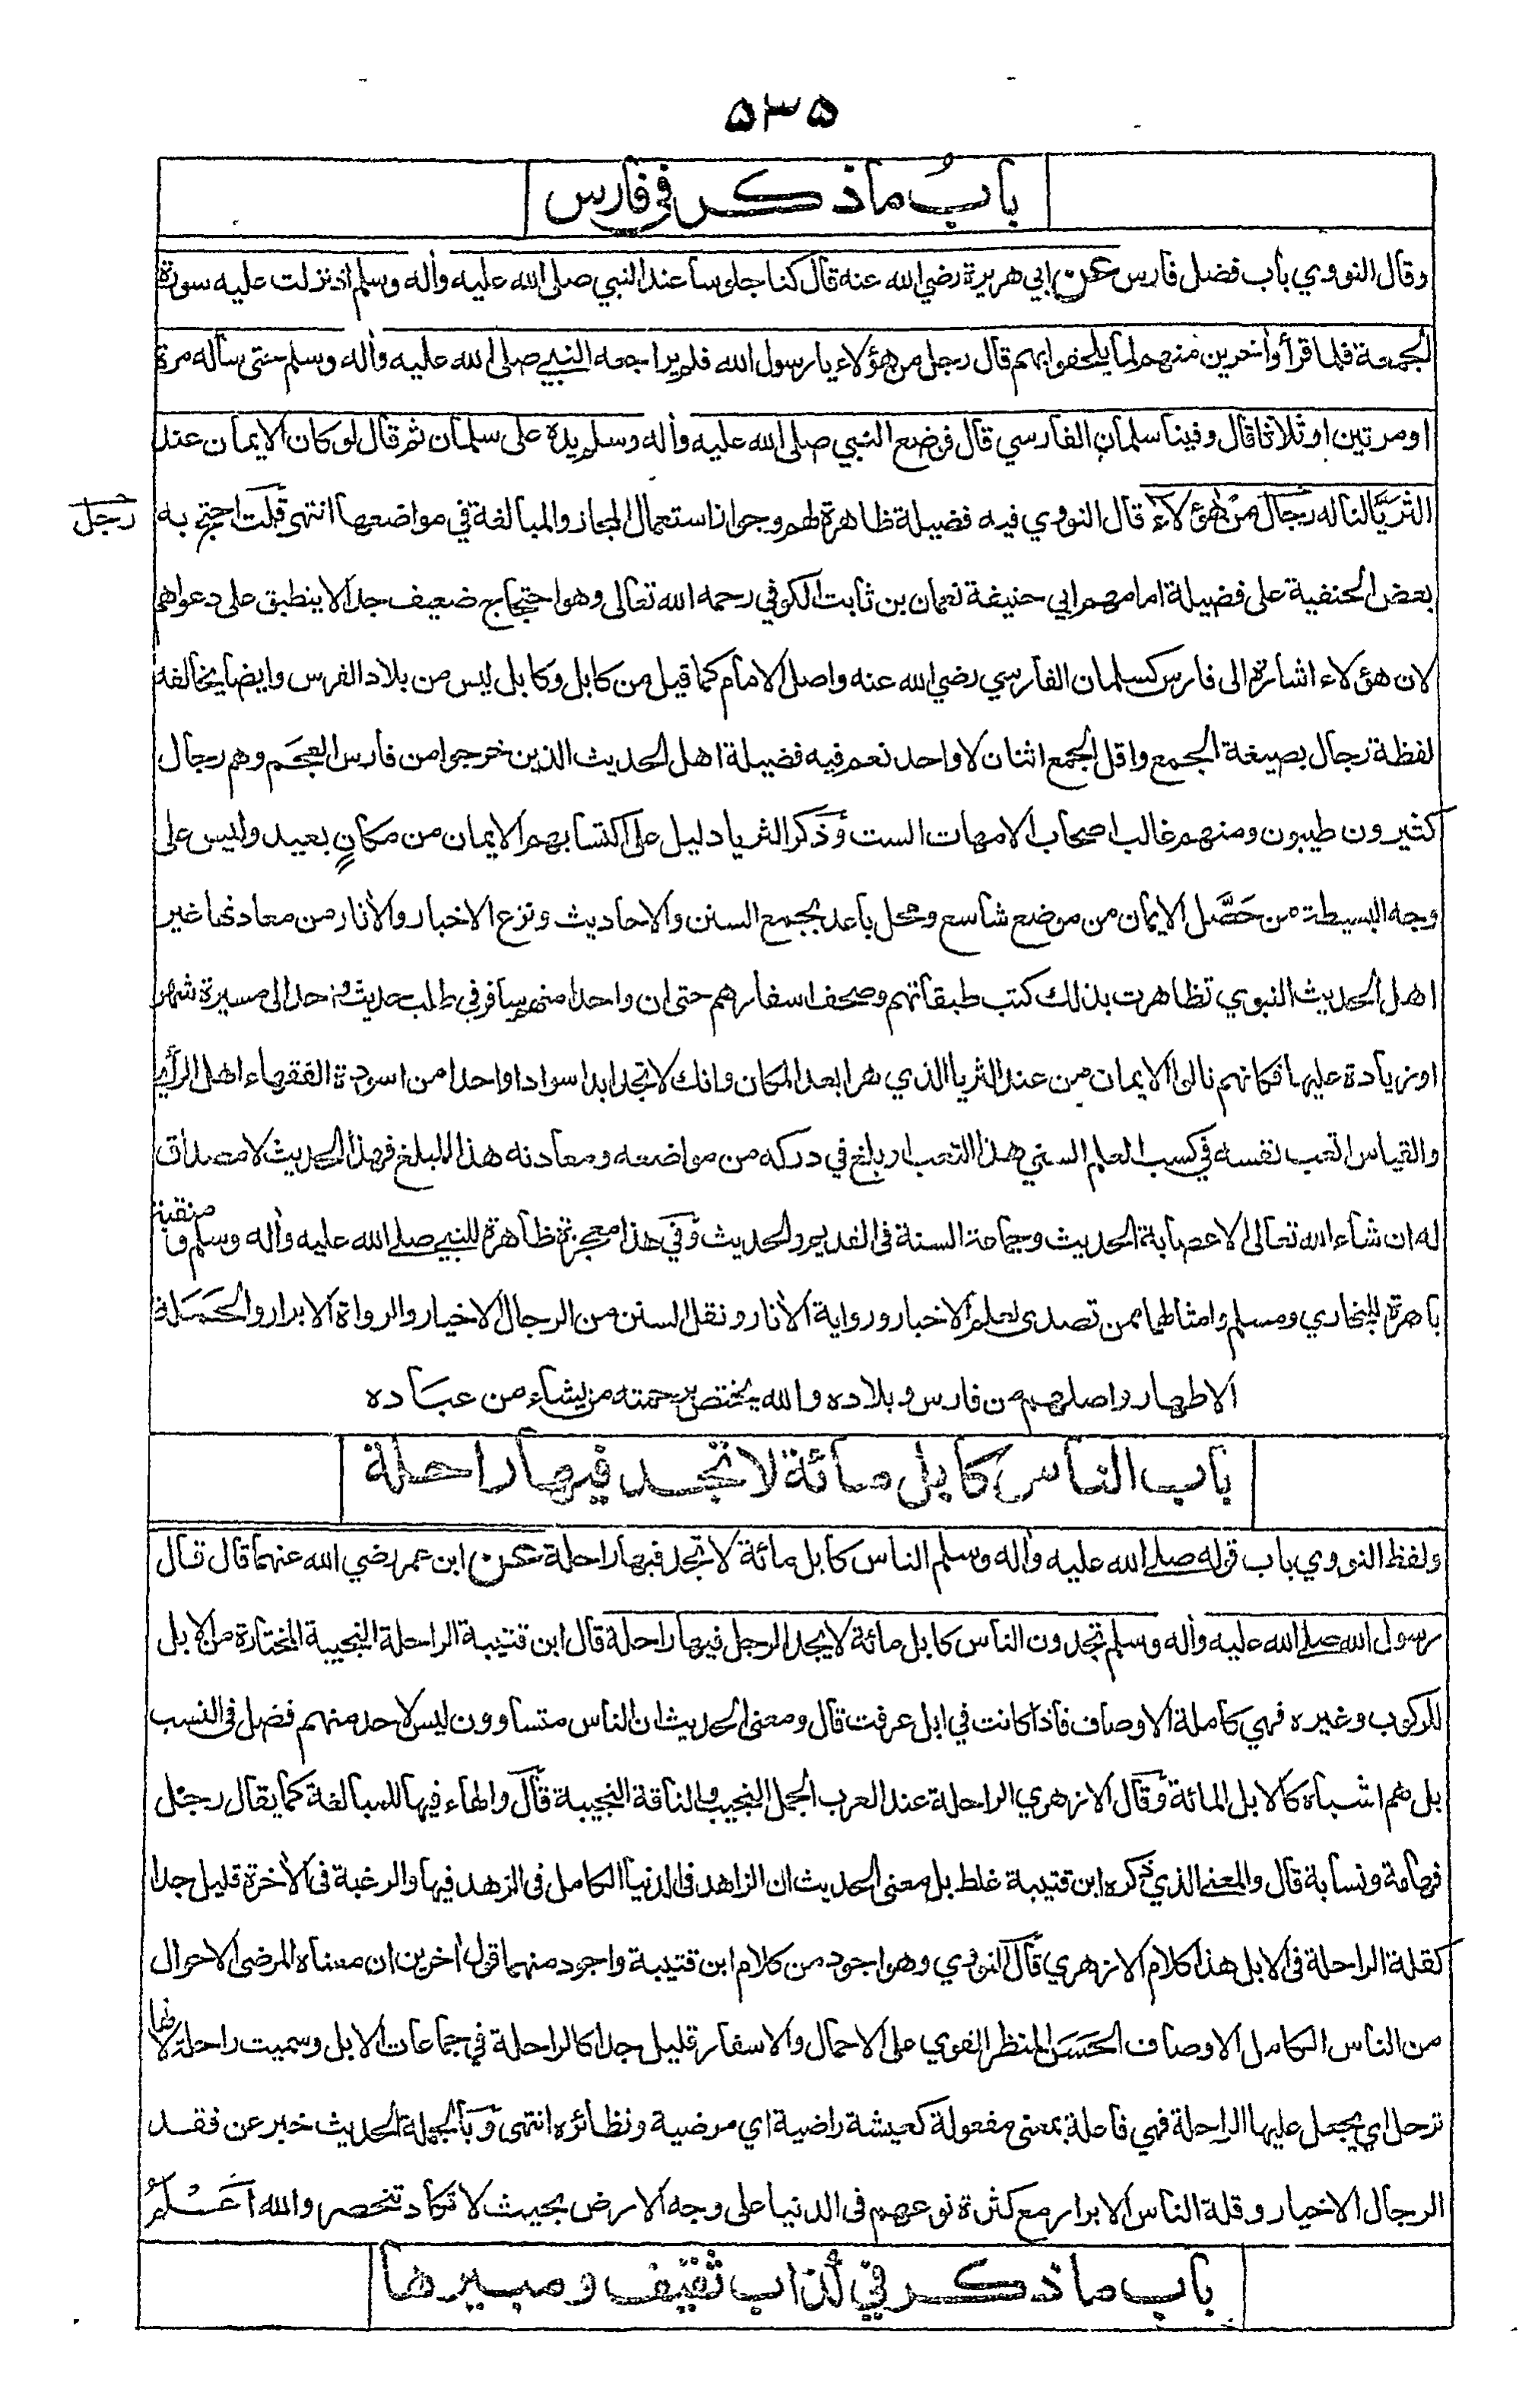 ٥٣٥
باب ما ذكر في فارس
وقال النووي باب فضل فارس عن ابي هريرة رضي الله عنه قال كنا جلوسا عند النبي صلى الله عليه وأله وسلم اذ نزلت عليه سورة
الجمعة فلما قرأ وأخرين منهم لما يلحقوا بهم قال رجل من هؤلاء يا رسول الله فلم يراجعه النبي صلى الله عليه وأله وسلم حتى سأله مرة
او مرتين او ثلاثا قال وفينا سلمان الفارسي قال فوضع النبي صلى الله عليه وأله وسلم يده على سلمان ثم قال لو كان الايمان عند
الثريا لناله رجال من هؤلاء قال النووي فيه فضيلة ظاهرة لهم وجواز استعمال المجاز والمبالغة في مواضعها انتهى قلت احتج به
رجل
بعض الحنفية على فضيلة امامهم ابي حنيفة نعمان بن ثابت الكوفي رحمه الله تعالى وهو احتجاج ضعيف جدا لا ينطبق على دعواهم
لان هؤلاء اشارة الى فارس كسلمان الفارسي رضي الله عنه واصل الامام كما قيل من كابل وكابل ليس من بلاد الفرس وايضا يخالفه
لفظة رجال بصيغة الجمع واقل الجمع اثنان لا واحد نعم فيه فضيلة اهل الحديث الذين خرجوا من فارس العجم وهم رجال
كثيرون طيبون ومنهم غالب اصحاب الامهات الست وذكر الثريا دليل على اكتسابهم الايمان من مكان بعيد وليس على
وجه البسيطة من حصّل الايمان من موضع شاسع ومحل باعد بجمع السنن والاحاديث ونزع الاخبار والأثار من معادنها غير
اهل الحديث النبوي تظاهرت بذلك كتب طبقاتهم وصحف اسفارهم حتى ان واحدا منهم سافر في طلب حديث واحد الى مسيرة شهر
او زيادة عليها فكانهم نالوا الايمان من عند الثريا الذي هو ابعد المكان وانك لا تجد ابدا سوادا واحدا من اسودة الفقهاء اهل الرأي
والقياس اتعب نفسه في كسب العلم السني هذا التعب او بلغ في دركه من مواضعه ومعادنه هذا المبلغ فهذا الحديث لا مصداق
له ان شاء الله تعالى الا عصابة الحديث وجماعة السنة في القديم والحديث وفي هذا معجزة ظاهرة للنبي صلى الله عليه وأله وسلم و منقبة
باهرة للبخاري ومسلم وامثالهما ممن تصدى لعلم الاخبار ورواية الأثار ونقل السنن من الرجال الاخيار والرواة الابرار والحملة
الاطهار واصلهم من فارس وبلاده والله يختص برحمته من يشاء من عباده
باب الناس كابل مائة لا تجد فيها راحلة
ولفظ النووي باب قوله صلى الله عليه وأله وسلم الناس كابل مائة لا تجد فيها راحلة عن ابن عمر رضي الله عنهما قال قال
رسول الله صلى الله عليه وأله وسلم تجدون الناس كابل مائة لا يجد الرجل فيها راحلة قال ابن قتيبة الراحلة النجيبة المختارة من الابل
للركوب وغيره فهي كاملة الاوصاف فاذا كانت في ابل عرفت قال ومعنى الحديث ان الناس متساوون ليس لاحد منهم فضل في النسب
بل هم اشباه كالابل المائة وقال الازهري الراحلة عند العرب الجمل النجيب والناقة النجيبة قال والهاء فيها للمبالغة كما يقال رجل
فهامة ونسابة قال والمعنى الذي ذكره ابن قتيبة غلط بل معنى الحديث ان الزاهد في الدنيا الكامل في الزهد فيها والرغبة في الأخرة قليل جدا
كقلة الراحلة في الابل هذا كلام الازهري قال النووي وهو اجود من كلام ابن قتيبة واجود منهما قول أخرين ان معناه المرضى الاحوال
من الناس الكامل الاوصاف الحسن المنظر القوي على الاحمال والاسفار قليل جدا كالراحلة في جماعات الابل وسميت راحلة لانها
ترحل اي يجعل عليها الراحلة فهي فاعلة بمعنى مفعولة كعيشة راضية اي مرضية ونظائره انتهى وبالجملة الحديث خبر عن فقد
الرجال الاخيار وقلة الناس الابرار مع كثرة نوعهم في الدنيا على وجه الارض بحيث لا تكاد تنحصر والله اعلم
باب ما ذكر في كذاب ثقيف ومبيرها